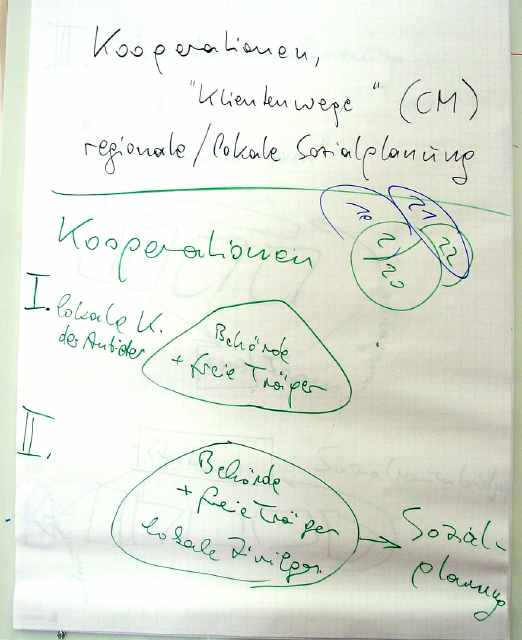 Kooperationen,
"Klientenwege" (CM)
regionale/lokale Sozialplanung
Kooperationen
21
22
20
I. lokale K.
der Anbieter
Behörde
+ freie Träger
II.
Behörde
+ freie Träger
lokale Zivilges.
Sozial-
planung